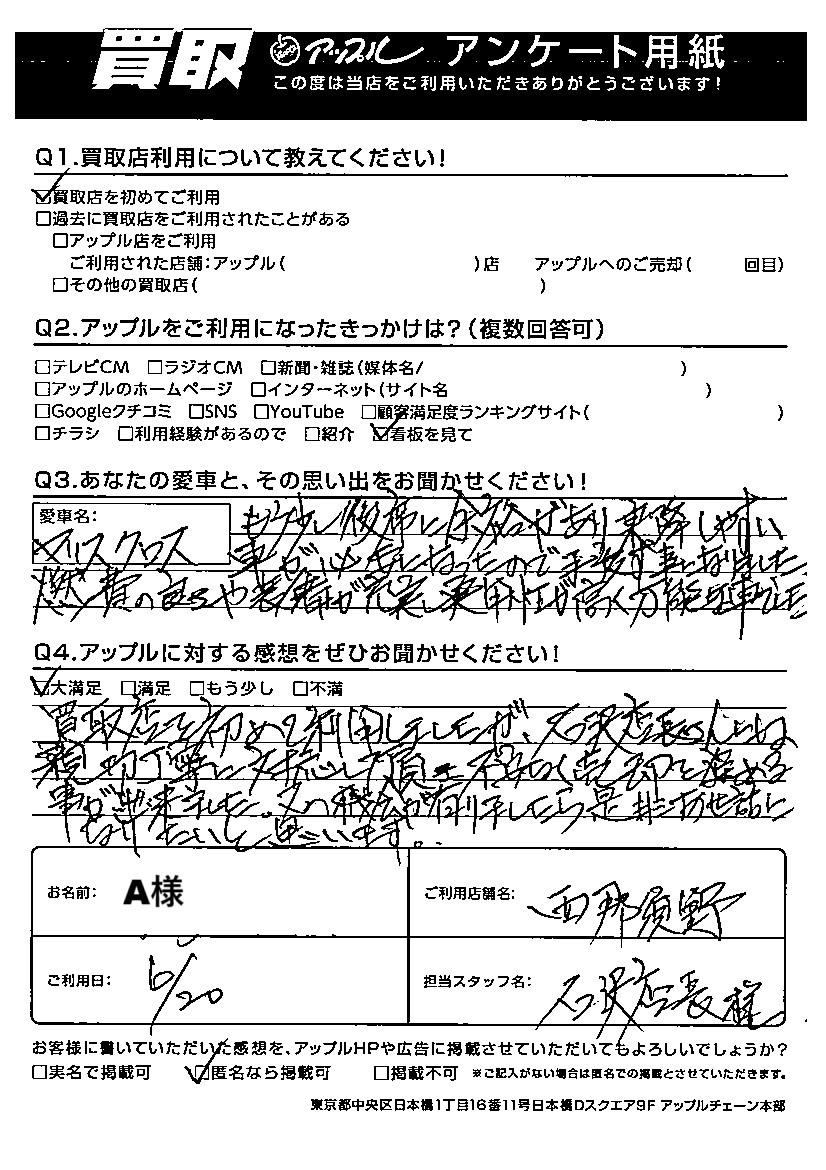 買取 アップル アンケート用紙
この度は当店をご利用いただきありがとうございます!
Q1.買取店利用について教えてください!
☑買取店を初めてご利用
□過去に買取店をご利用されたことがある
□アップル店をご利用
ご利用された店舗:アップル( )店 アップルへのご売却( 回目)
□その他の買取店( )
Q2.アップルをご利用になったきっかけは?(複数回答可)
□テレビCM □ラジオCM □新聞・雑誌(媒体名/ )
□アップルのホームページ □インターネット(サイト名 )
□Googleクチコミ □SNS □YouTube □顧客満足度ランキングサイト( )
□チラシ □利用経験があるので □紹介 ☑看板を見て
Q3.あなたの愛車と、その思い出をお聞かせください!
愛車名:
ヤリスクロス
もう少し後席に余裕があり乗降しやすい
車が必要になったので手放す事になりました
燃費の良さや装備が充実し実用性が高く万能な車でした
Q4.アップルに対する感想をぜひお聞かせください!
☑大満足 □満足 □もう少し □不満
買取店を初めて利用しましたが、石沢店長さんには
親切丁寧に対応して頂き不安なく売却を進める
事が出来ました。又の機会が有りましたら是非お世話に
なりたいと思います。
お名前: A様
ご利用店舗名: 西那須野
ご利用日: 6/20
担当スタッフ名: 石沢店長様
お客様に書いていただいた感想を、アップルHPや広告に掲載させていただいてもよろしいでしょうか?
□実名で掲載可 ☑匿名なら掲載可 □掲載不可 ※ご記入がない場合は匿名での掲載とさせていただきます。
東京都中央区日本橋1丁目16番11号日本橋Dスクエア9F アップルチェーン本部